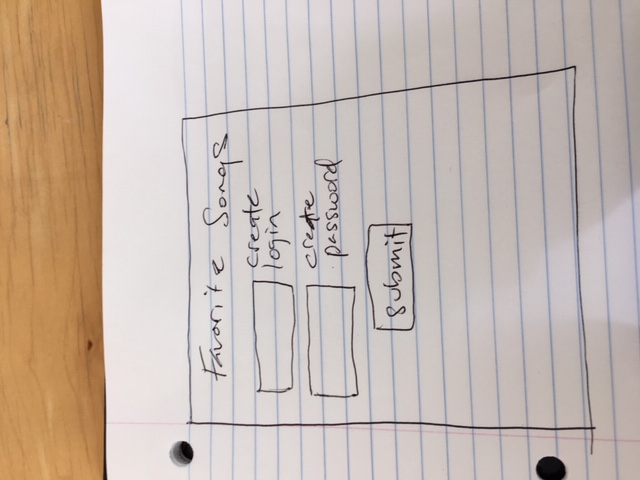 Favorite Songs
create
login
create
password
submit